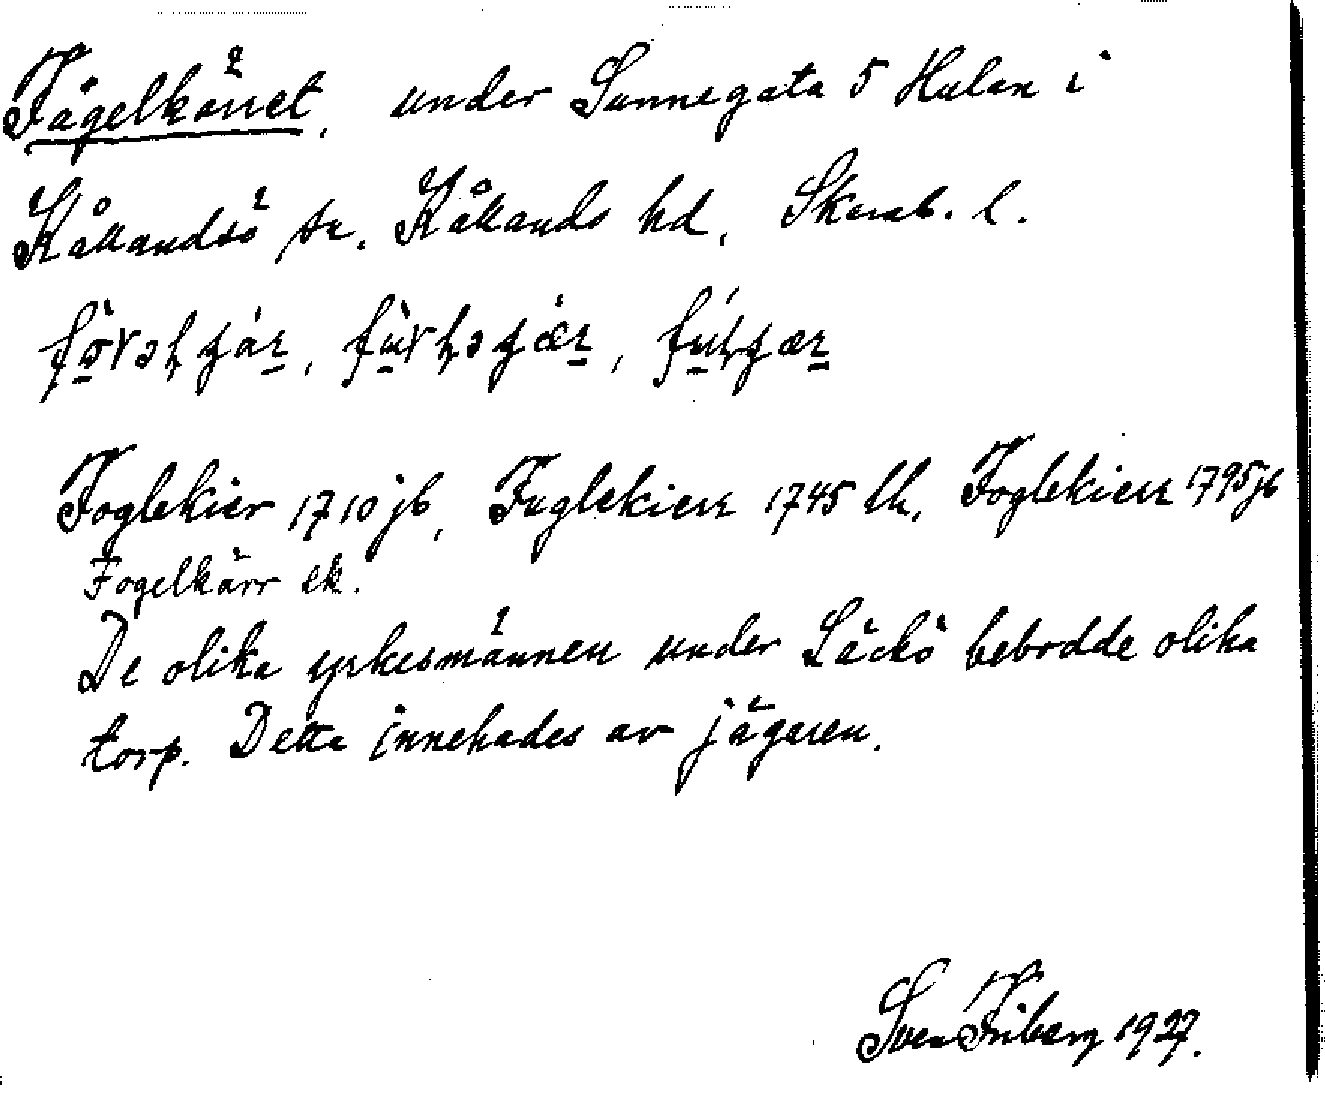 Fågelkärret, under Sunnegata 5 Halan i
Kållandsö sn. Kållands hd, Skarab. l.
Foglekier 1710 jb, Fuglekierr 1745 lh, Foglekierr 1795 jb
Fogelkärr ek.
De olika yrkesmännen under Läckö bebodde olika
torp. Detta innehades av jägaren.
Sven Friberg 1927.